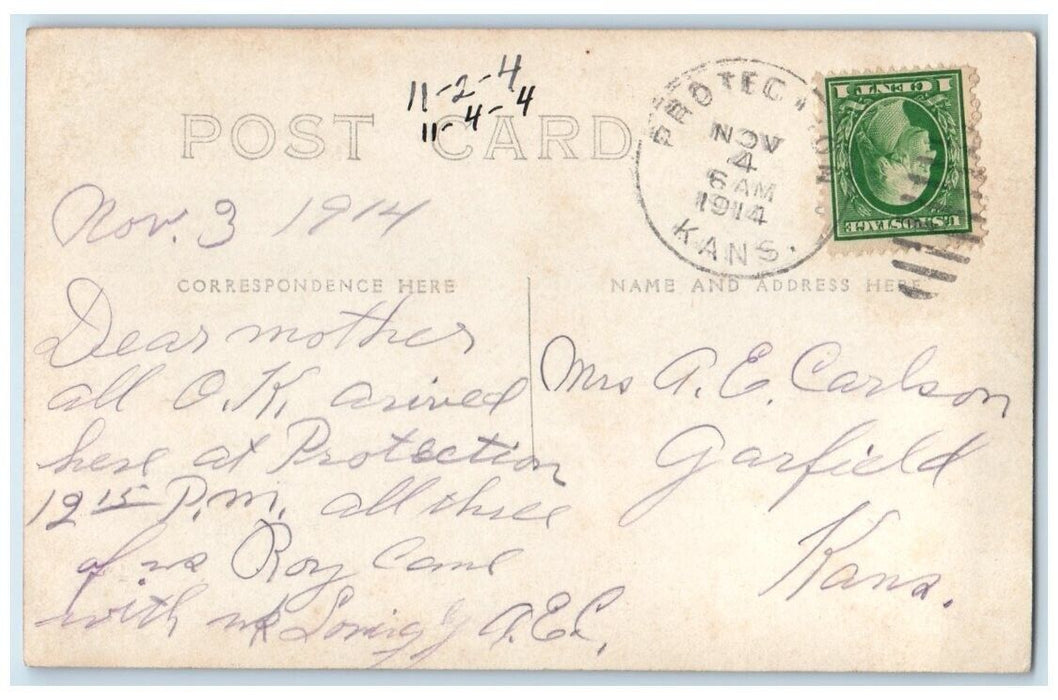 11-2-4
11-4-4
POST CARD
PROTECTION
NOV
4
6 AM
1914
KANS.
1 CENT 1
U.S. POSTAGE
Nov. 3 1914
CORRESPONDENCE HERE
NAME AND ADDRESS HERE
Dear mother
all O.K. arived
here at Protection
12 15 P.M. all three
of us Roy Came
with us A.E.C.
Mrs A. E. Carlson
Garfield
Kans.